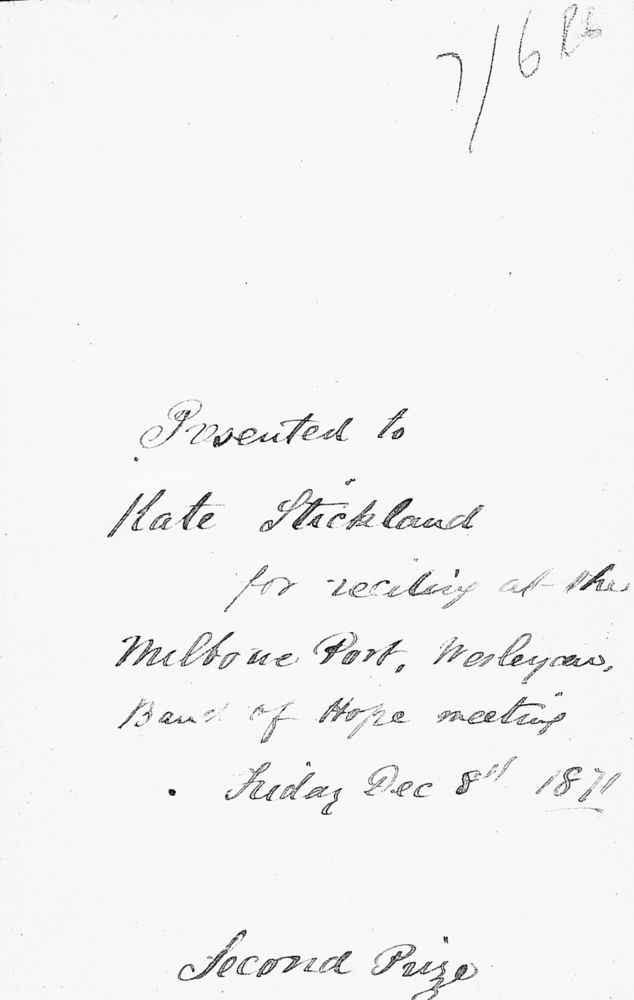 7/6
Presented to
Kate Stickland
for reciting at the
Milbone Port, Wesleyan,
Band of Hope meeting
Friday Dec 8th 1871
Second Prize